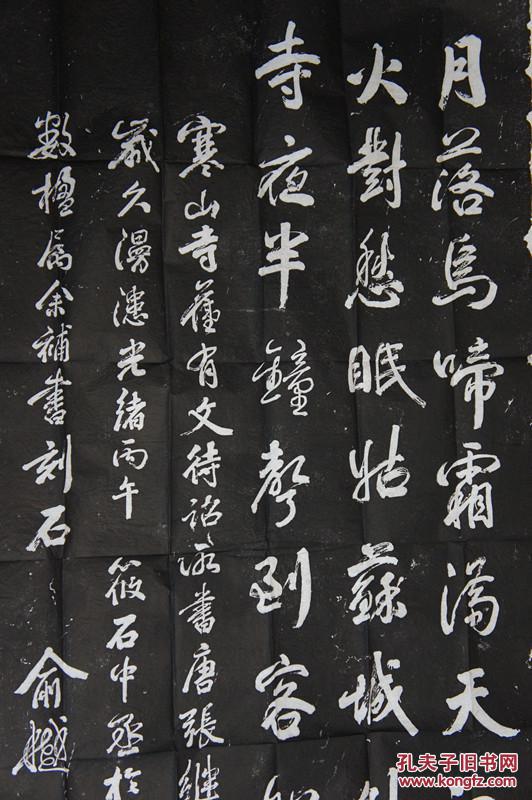 月落烏啼霜滿天
火對愁眠姑蘇城
寺夜半鐘聲到客
寒山寺舊有文待詔所書唐張繼
歲久漫漶光緒丙午筱石中丞於
數楹屬余補書刻石
俞樾
孔夫子旧书网
www.kongfz.com